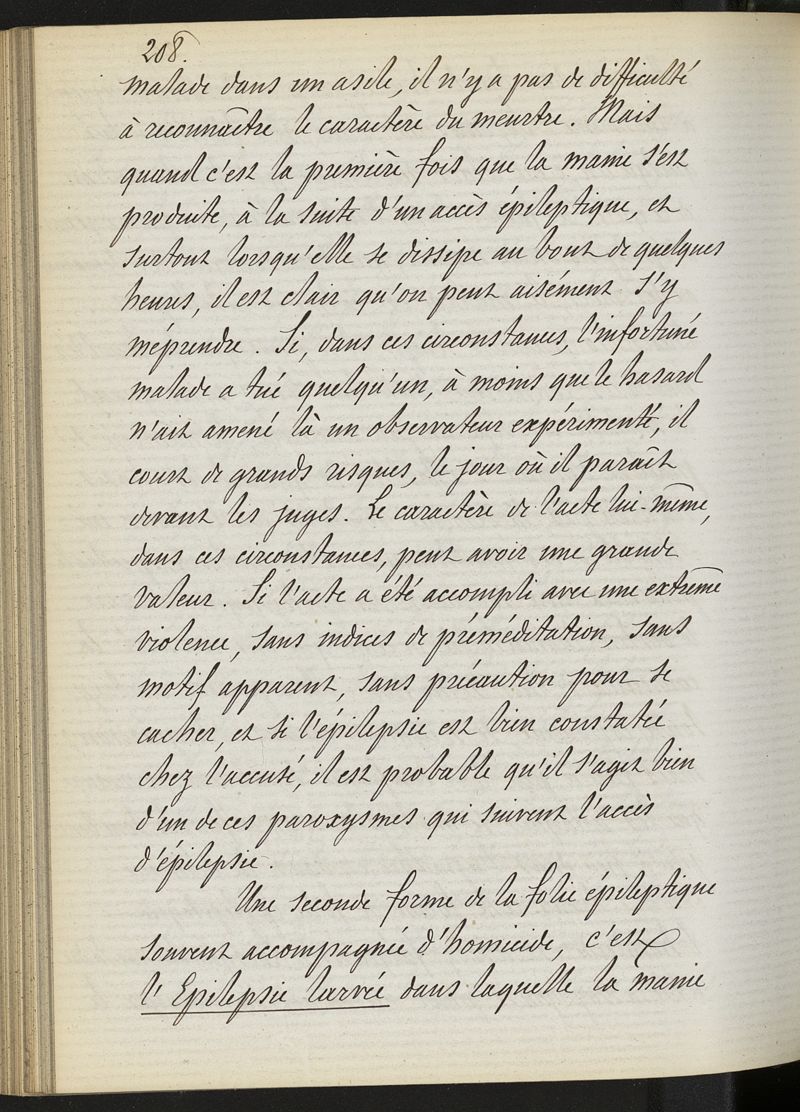 208.
malade dans un asile, il n'y a pas de difficulté
à reconnaître le caractère du meurtre. Mais
quand c'est la première fois que la manie s'est
produite, à la suite d'un accès épileptique, et
surtout lorsqu'elle se dissipe au bout de quelques
heures, il est clair qu'on peut aisément s'y
méprendre. Si, dans ces circonstances, l'infortuné
malade a tué quelqu'un, à moins que le hasard
n'ait amené là un observateur expérimenté, il
court de grands risques, le jour où il paraît
devant les juges. Le caractère de l'acte lui-même,
dans ces circonstances, peut avoir une grande
valeur. Si l'acte a été accompli avec une extrême
violence, sans indices de préméditation, sans
motif apparent, sans précaution pour se
cacher, et si l'épilepsie est bien constatée
chez l'accusé, il est probable qu'il s'agit bien
d'un de ces paroxysmes qui suivent l'accès
d'épilepsie.
Une seconde forme de la folie épileptique
souvent accompagnée d'homicide, c'est
l'Epilepsie larvée dans laquelle la manie